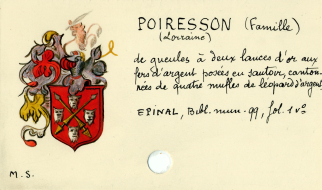 POIRESSON (Famille)
(Lorraine)
de gueules à deux lances d'or aux
fers d'argent posées en sautoir, canton-
nées de quatre mufles de léopard d'argent
EPINAL, Bibl. mun. 99, fol. 1 vº
M.S.